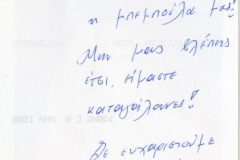 η μπεμπούλα μας!
Μην μας βλέπεις
έτσι, είμαστε
καταγάλανες!
Σε ευχαριστούμε